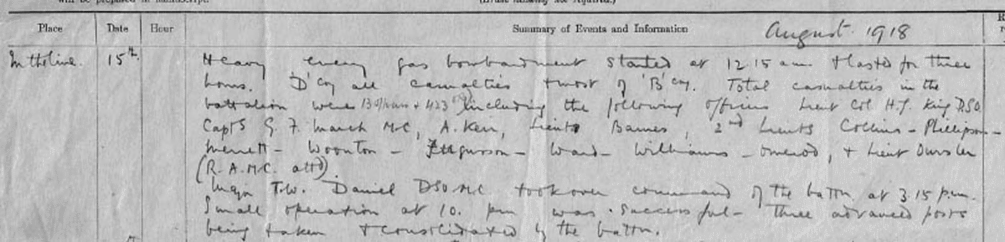 Place Date Hour Summary of Events and Information August 1918
In the line 15th Heavy enemy gas bombardment started at 12.15 am & lasted for three
hours. 'D' Coy all casualties & most of 'B' Coy. Total casualties in the
battalion were & 423 including the following officers Lieut Col H.J. King DSO
Capts G. F. March M.C, A. Kerr, Lieuts Barnes, 2nd Lieuts Collins – Phillipson –
Merrett – Woonton – Fergusson – Ward – Williams – Omerod, & Lieut
(R.A.M.C. attd)
Major T.W. Daniel DSO MC took over command of the battn at 3.15 p.m.
Small operation at 10. pm was successful – three advanced posts
being taken & consolidated by the battn.